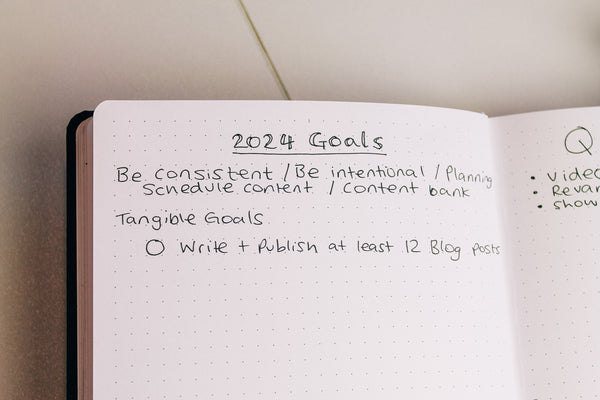 2024 Goals
Be consistent / Be intentional / Planning
Schedule content / Content bank
Tangible Goals
Write + Publish at least 12 Blog posts
Q
• video
• show